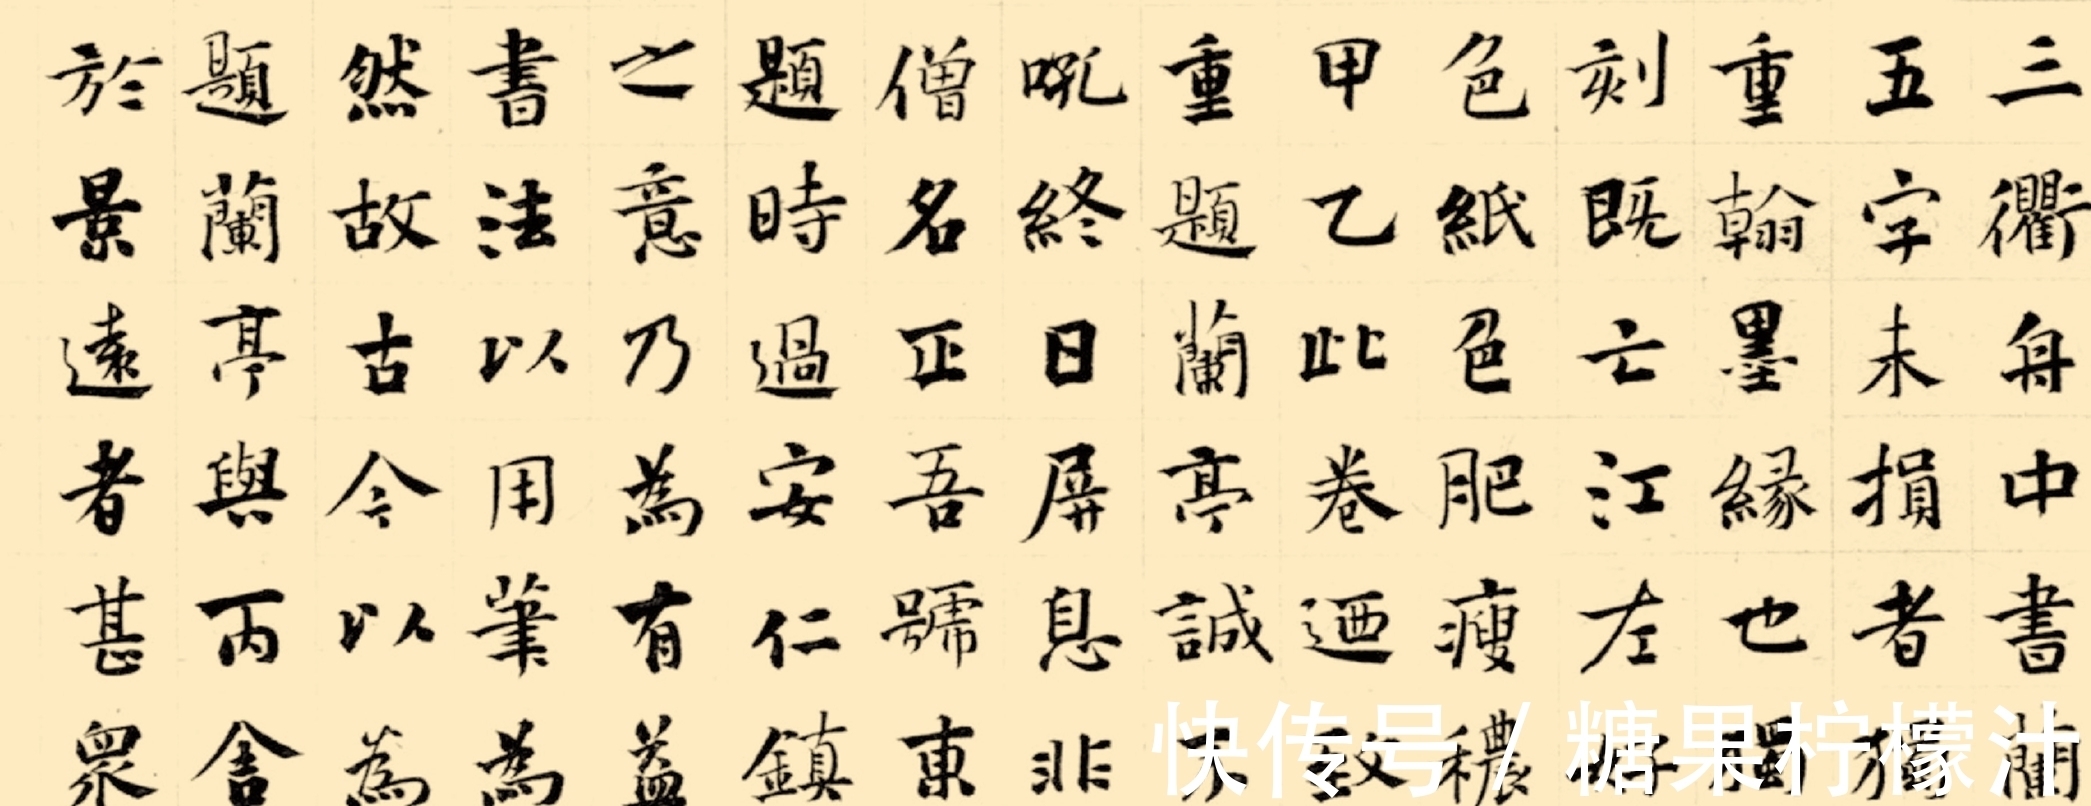 三衢舟中書蘭
五字未損者獨
重翰墨縁也
刻既亡江左好
色紙色肥瘦穠
甲乙此卷迺
重題蘭亭誠不
吮終日屏息非
僧名正吾號東
題時過安仁鎮
之意乃為有益
書法以用筆為
然故古今以為
題蘭亭與丙舍
於景遠者甚眾
快传号 / 糖果柠檬汁